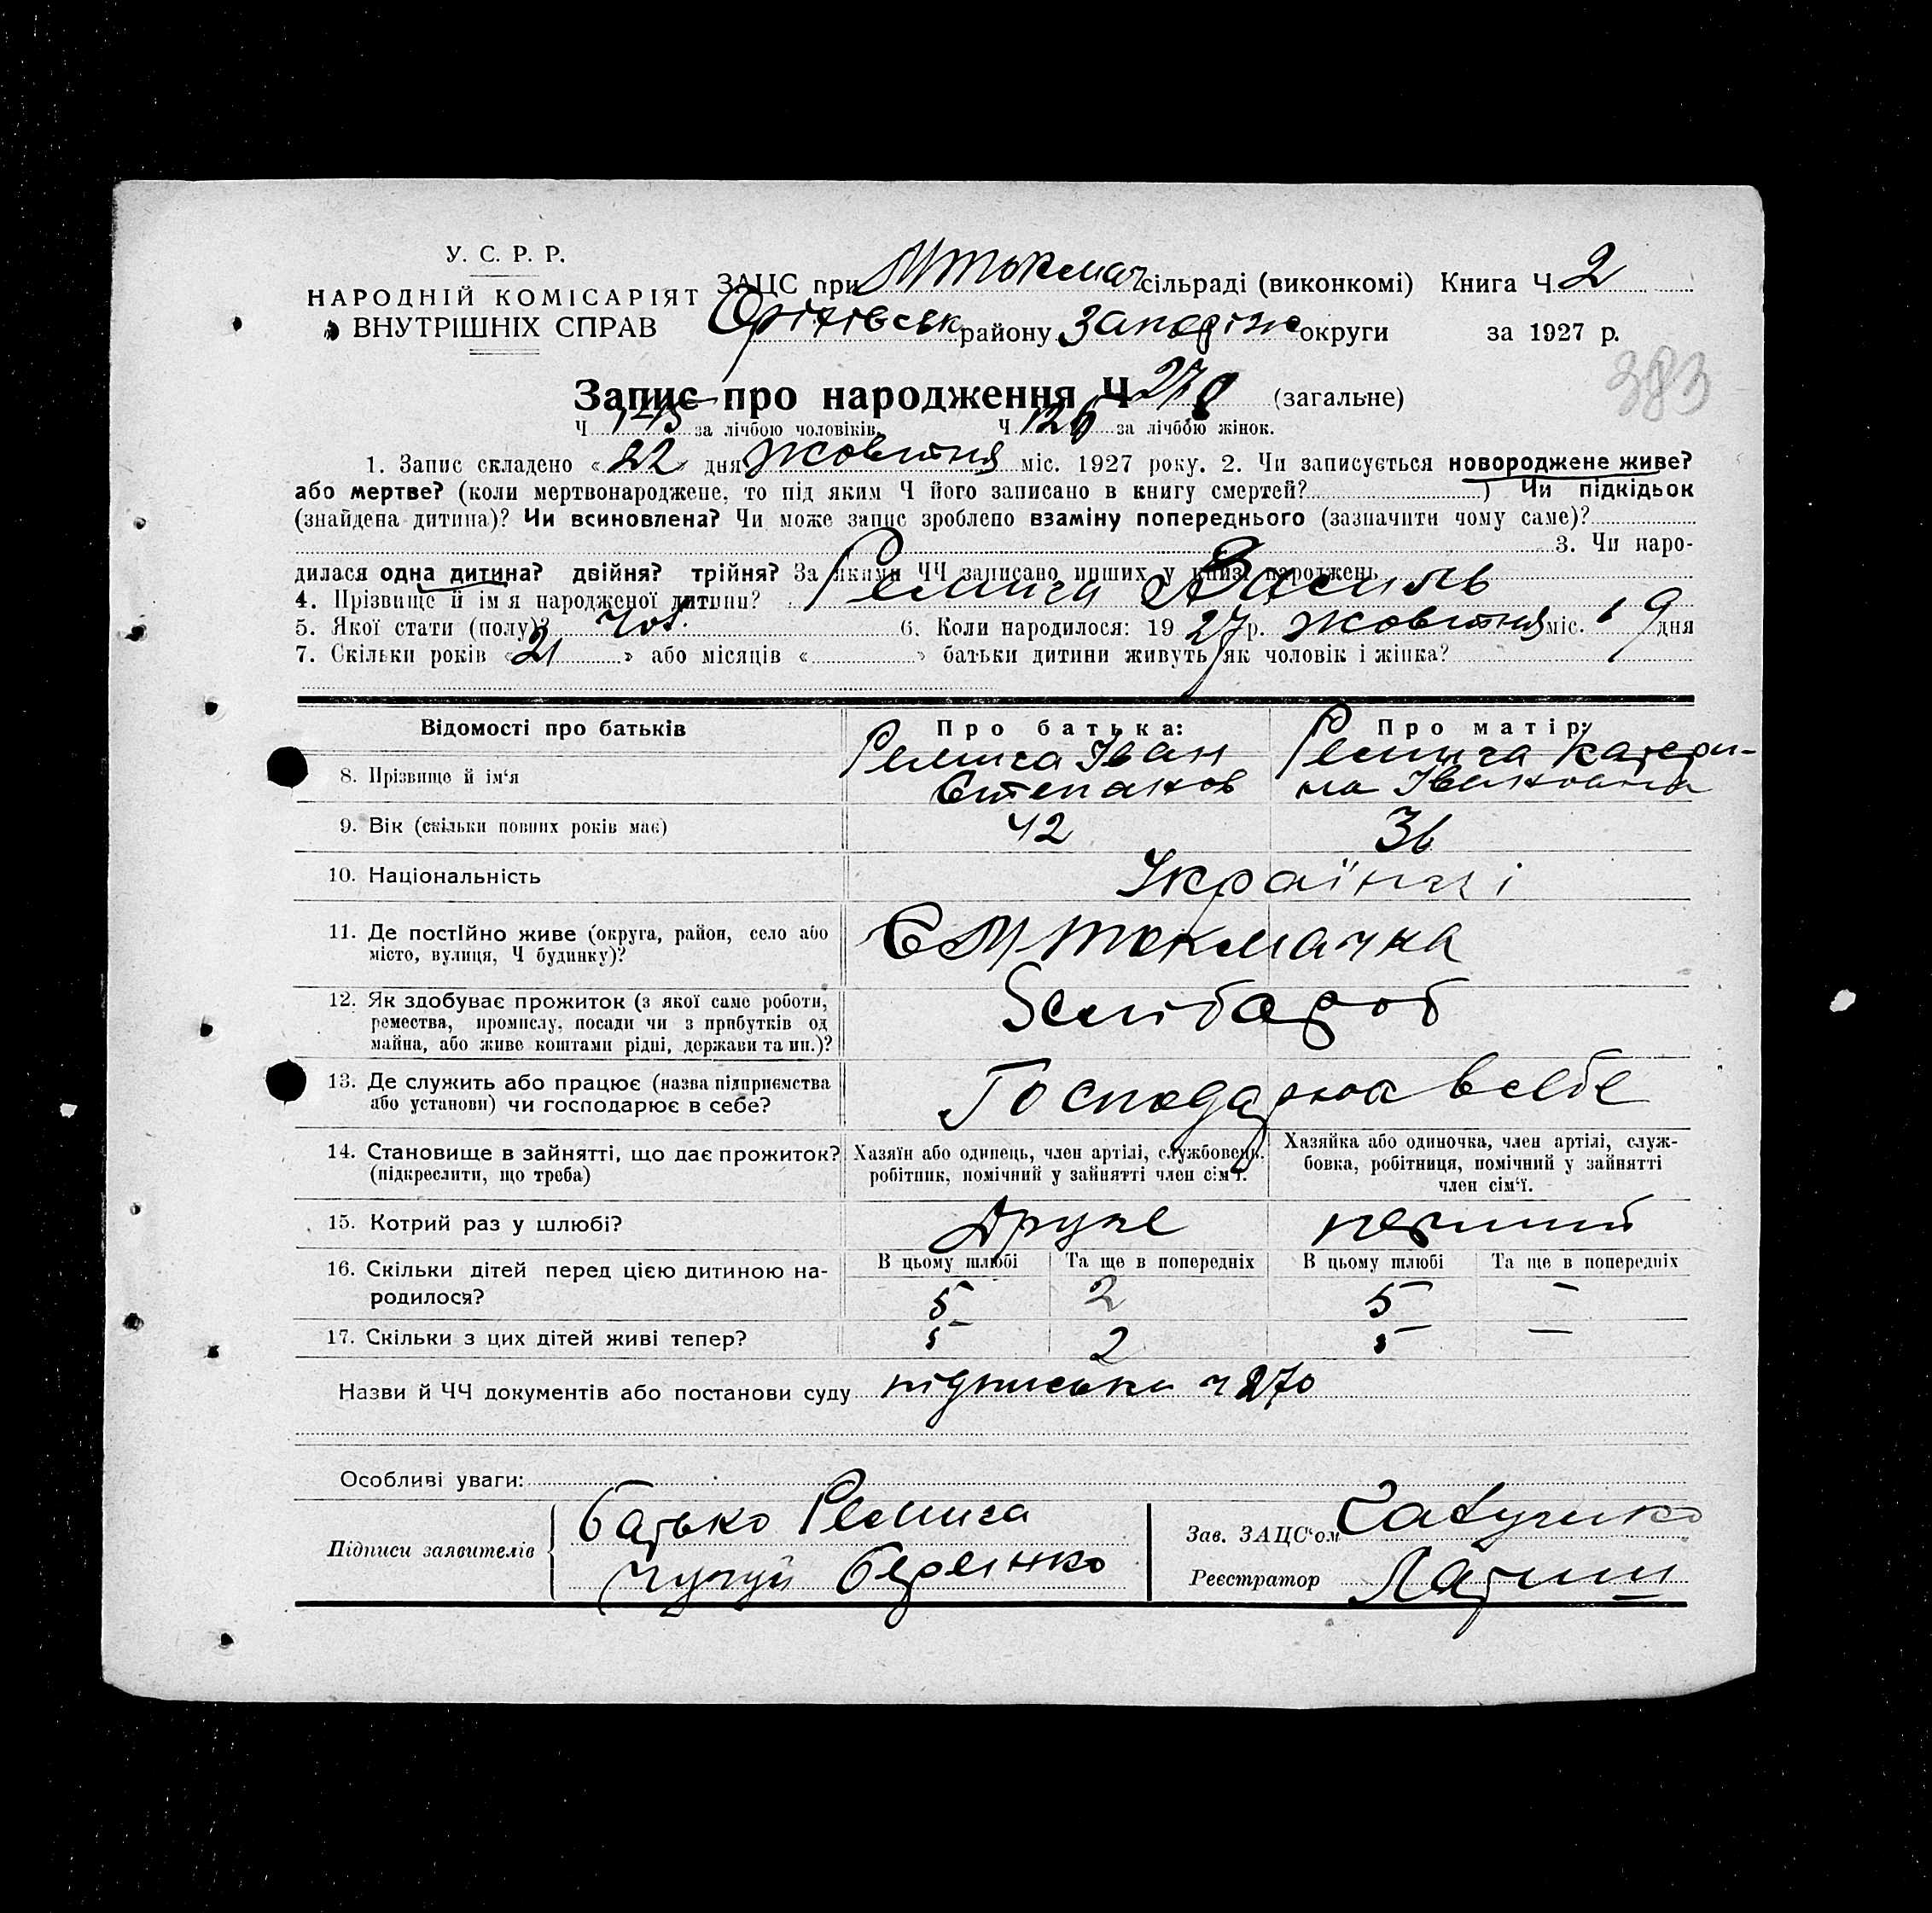 У. С. Р. Р.
НАРОДНІЙ КОМІСАРІЯТ
ВНУТРІШНІХ СПРАВ
ЗАЦС при МТокмач сільраді (виконкомі) Книга Ч. 2
Оріхівськ району Запоріж округи за 1927 р.
383
Запис про народження Ч 270 (загальне)
Ч. 145 за лічбою чоловіків. Ч. 126 за лічбою жінок.
1. Запис складено « 22 » дня жовтня міс. 1927 року. 2. Чи записується новороджене живе?
або мертве? (коли мертвонароджене, то під яким Ч його записано в книгу смертей? ) Чи підкідьок
(знайдена дитина)? Чи всиновлена? Чи може запис зроблено взаміну попереднього (зазначити чому саме)?
3. Чи наро-
дилася одна дитина? двійня? трійня? За якими ЧЧ записано инших у книзі народжень
4. Прізвище й ім'я народженої дитини? Ремига Василь
5. Якої стати (полу)? чол. 6. Коли народилося: 19 27 р. жовтня міс. 19 дня
7. Скільки років « 21 » або місяців « » батьки дитини живуть як чоловік і жінка?
Відомості про батьків Про батька: Про матір:
8. Прізвище й ім'я Ремига Іван Ремига Катери-
Степанов на Івановна
9. Вік (скільки повних років має) 42 36
10. Національність Українці
11. Де постійно живе (округа, район, село або
місто, вулиця, Ч будинку)? С М Токмачка
12. Як здобуває прожиток (з якої саме роботи,
ремества, промислу, посади чи з прибутків од
майна, або живе коштами рідні, держави та ин.)? Хлібороб
13. Де служить або працює (назва підприємства
або установи) чи господарює в себе? Господарює в себе
14. Становище в зайнятті, що дає прожиток?
(підкреслити, що треба)
Хазяїн або одинець, член артілі, службовець,
робітник, помічний у зайнятті член сім'ї.
Хазяйка або одиночка, член артілі, служ-
бовка, робітниця, помічний у зайнятті
член сім'ї.
15. Котрий раз у шлюбі? Друге перший
В цьому шлюбі Та ще в попередніх В цьому шлюбі Та ще в попередніх
16. Скільки дітей перед цією дитиною на-
родилося? 5 2 5 —
17. Скільки з цих дітей живі тепер? 5 2 5 —
Назви й ЧЧ документів або постанови суду підписька ч 270
Особливі уваги:
Підписи заявителів Батько Ремига
Зав. ЗАЦС'ом
Реєстратор